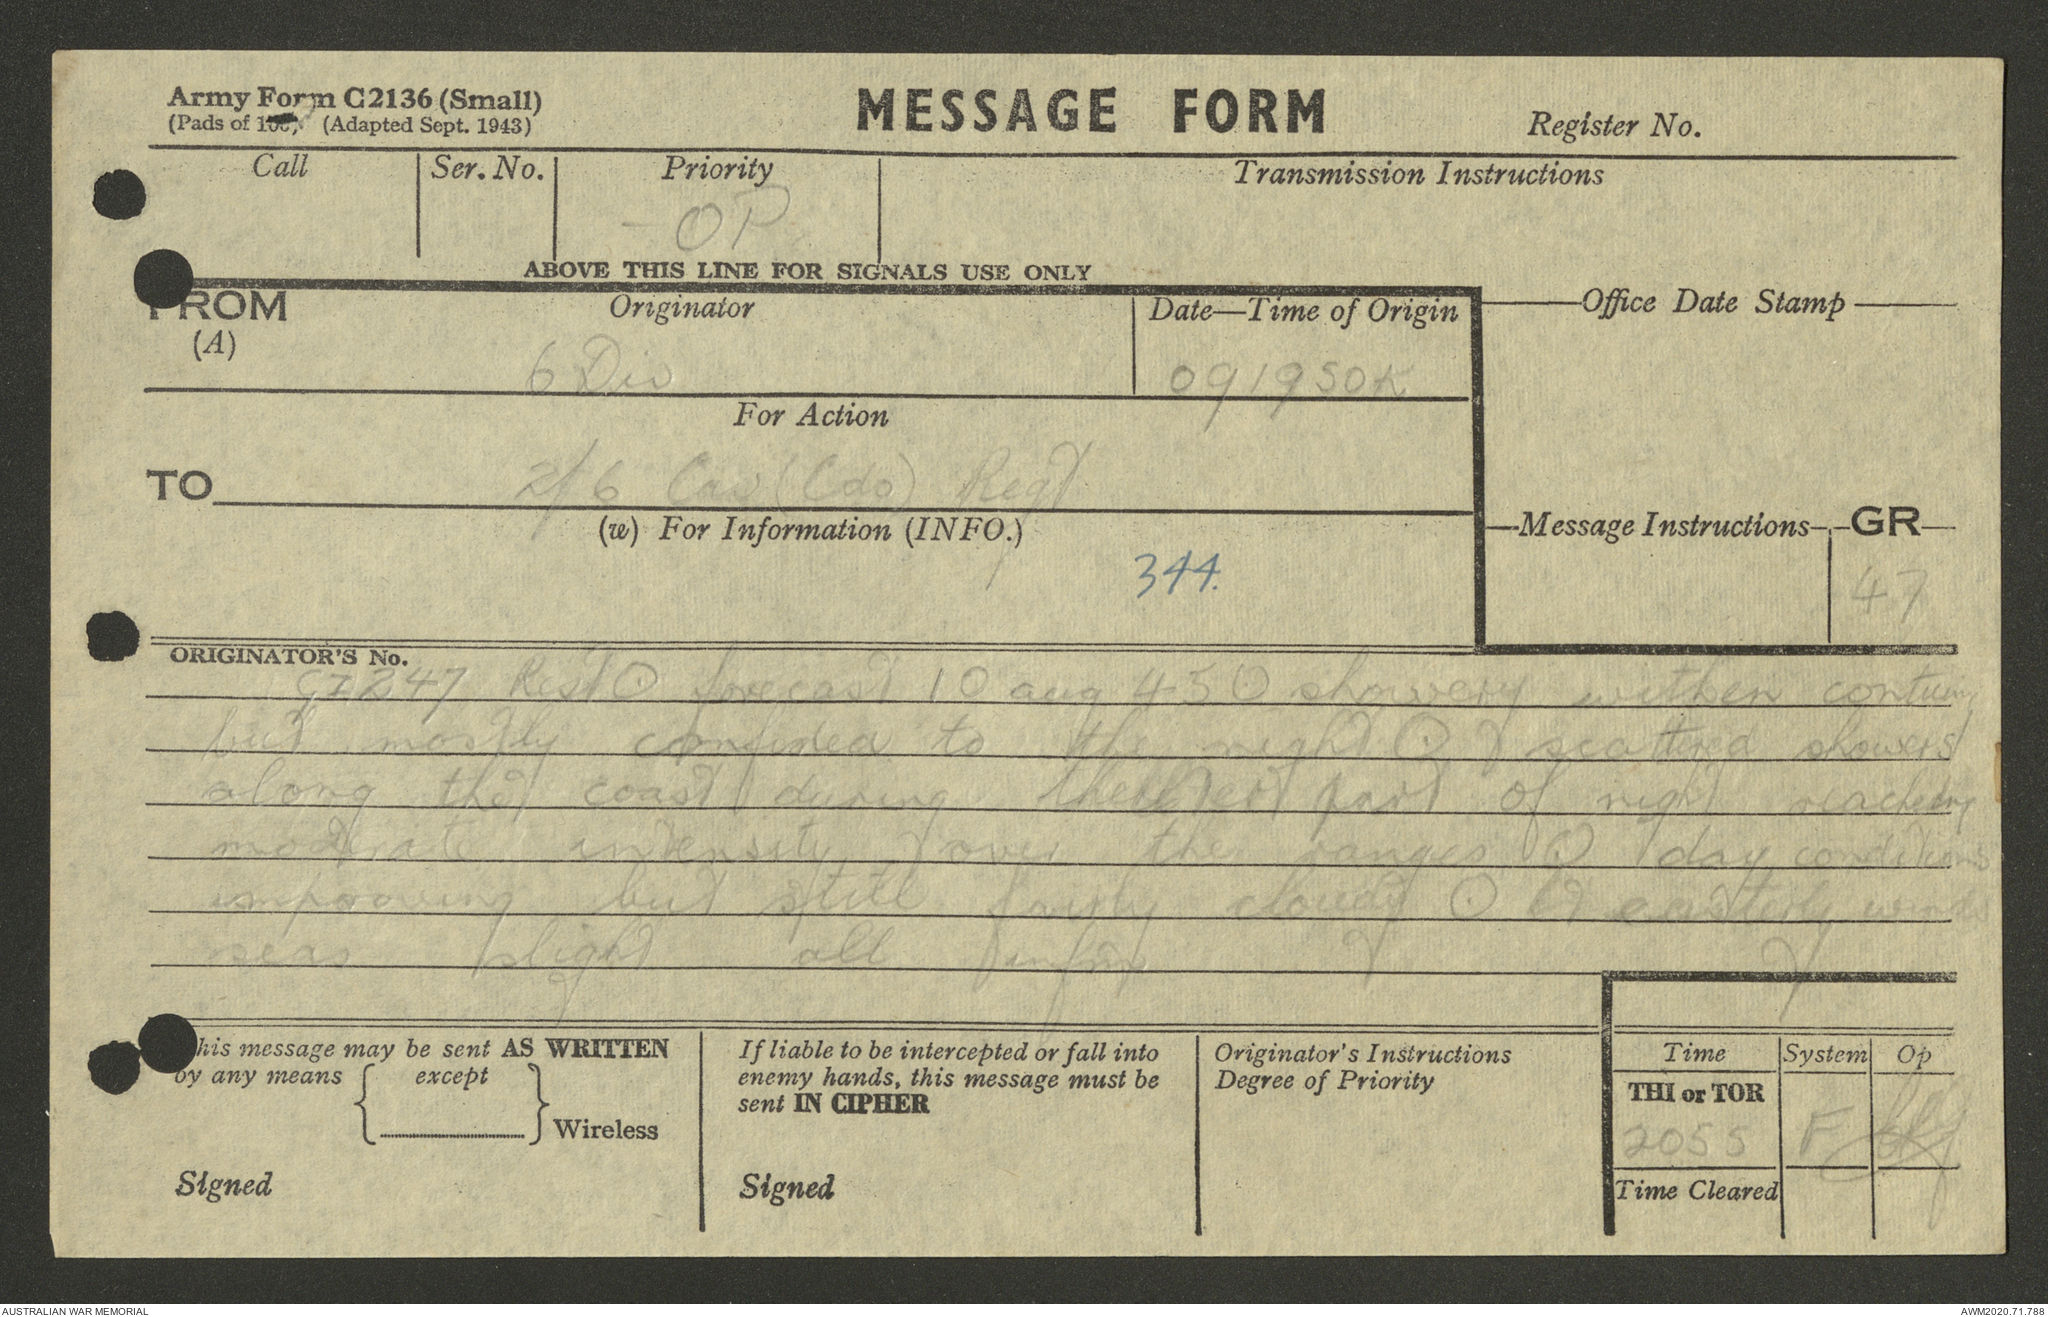 Army Form C2136 (Small)
(Pads of 100, (Adapted Sept. 1943)
MESSAGE FORM
Register No.
Call
Ser. No.
Priority
Transmission Instructions
- OP
ABOVE THIS LINE FOR SIGNALS USE ONLY
FROM
(A)
Originator
Date—Time of Origin
Office Date Stamp
6 Div
091950K
For Action
TO
2/6 Cav (Cdo) Regt
(w) For Information (INFO.)
Message Instructions
GR
344.
47
ORIGINATOR'S No.
GI247 Rest O forecast 10 aug 45 O showery
but mostly confined to the night O scattered showers
along the coast during the part of night reaching
moderate intensity over the ranges O day conditions
improoving but still fairly cloudy O easterly winds
seas slight all infm
This message may be sent AS WRITTEN
by any means except
Wireless
Signed
If liable to be intercepted or fall into
enemy hands, this message must be
sent IN CIPHER
Signed
Originator's Instructions
Degree of Priority
Time
System
Op
THI or TOR
2055
F
Time Cleared
AUSTRALIAN WAR MEMORIAL
AWM2020.71.788